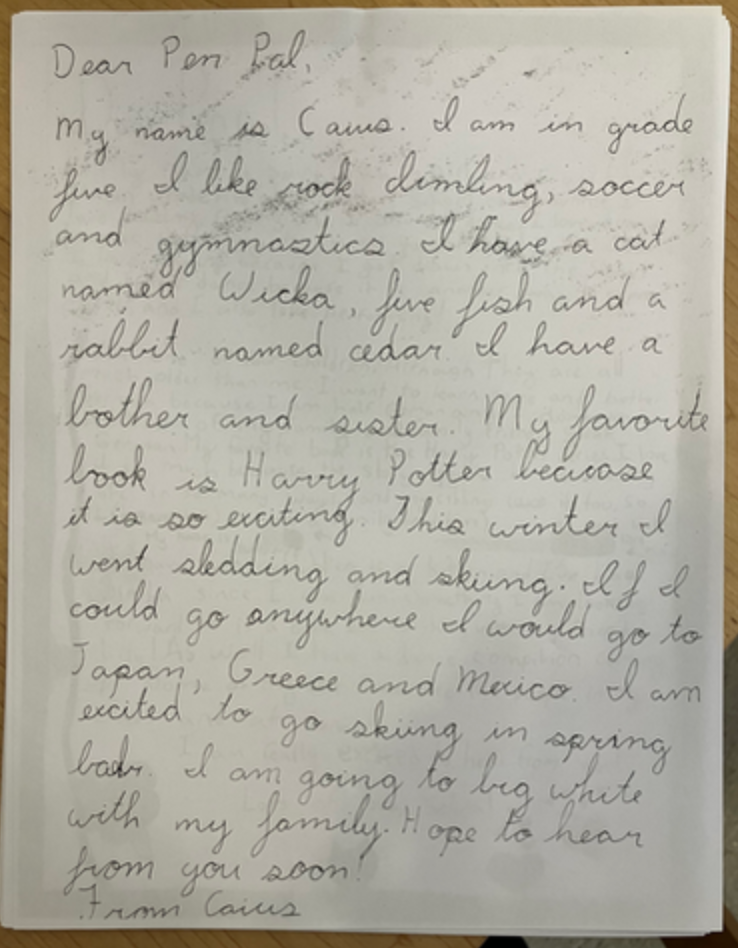 Dear Pen Pal,
My name is Caius. I am in grade
five I like rock climbing, soccer
and gymnastics. I have a cat
named Wicka, five fish and a
rabbit named cedar I have a
bother and sister. My favorite
book is Harry Potter because
it is so exciting. This winter I
went sledding and skiing. If I
could go anywhere I would go to
Japan, Greece and Mexico. I am
excited to go skiing in spring
I am going to big white
with my family. Hope to hear
from you soon!
From Caius